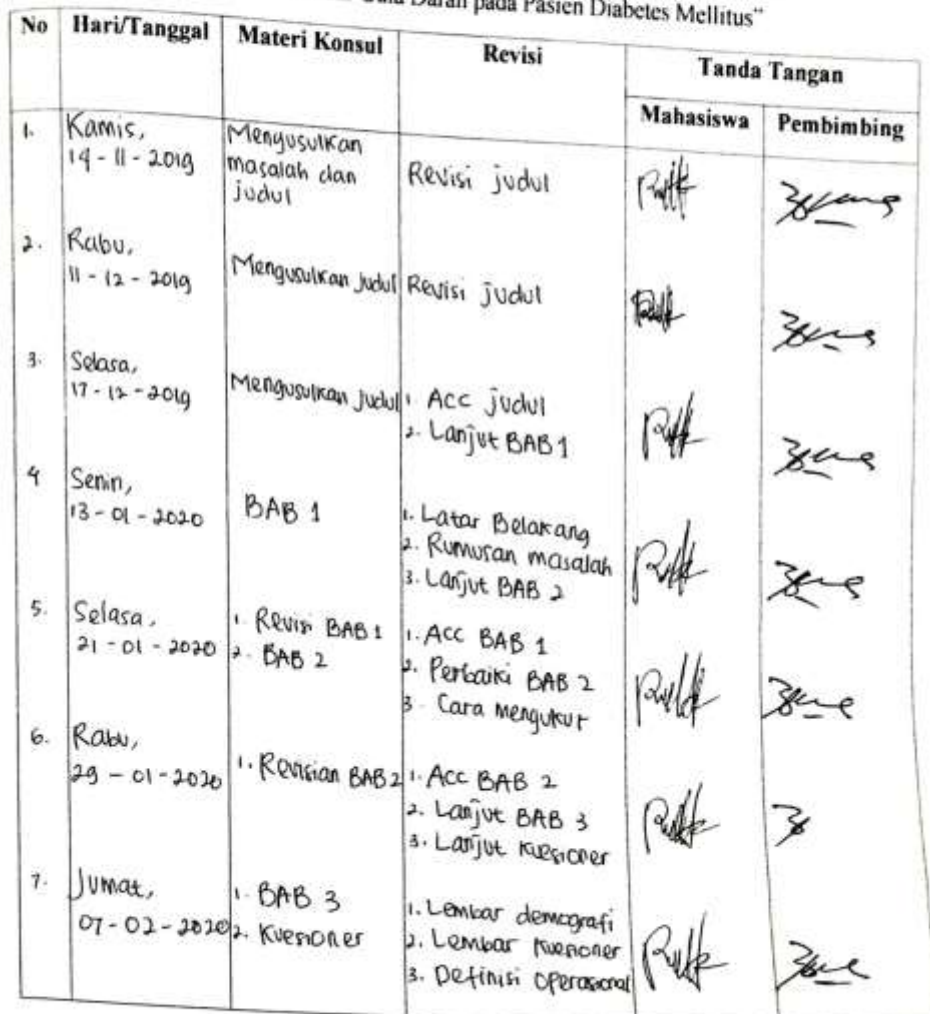 Gula Darah pada Pasien Diabetes Mellitus"
No Hari/Tanggal Materi Konsul Revisi Tanda Tangan
Mahasiswa Pembimbing
1. Kamis,
14 - 11 - 2019
Mengusulkan
masalah dan
judul
Revisi judul
2. Rabu,
11 - 12 - 2019
Mengusulkan judul
Revisi judul
3. Selasa,
17 - 12 - 2019
Mengusulkan judul
1. Acc judul
2. Lanjut BAB 1
4 Senin,
13 - 01 - 2020
BAB 1
1. Latar Belakang
2. Rumusan masalah
3. Lanjut BAB 2
5. Selasa,
21 - 01 - 2020
1. Revisi BAB 1
2. BAB 2
1. Acc BAB 1
2. Perbaiki BAB 2
3. Cara mengukur
6. Rabu,
29 - 01 - 2020
1. Revisian BAB 2
1. Acc BAB 2
2. Lanjut BAB 3
3. Lanjut kuesioner
7. Jumat,
07 - 02 - 2020
1. BAB 3
2. Kuesioner
1. Lembar demografi
2. Lembar kuesioner
3. Definisi operasional